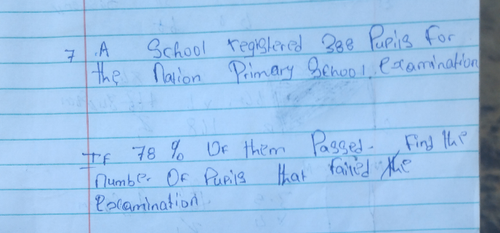 7 .A School registered 388 Pupils for
the Nation Primary School examination
If 78 % Of them Passed. Find the
number Of Pupils that failed the
examination.